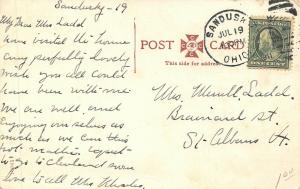 Sandusky - 19
My Dear Mrs Ladd
have visited the home
any perfectly lovely
wish you all could
have been with me
We are well and
enjoying ourselves as
much as we can this
hot
to go to Cleveland soon
love to all Mrs
POST CARD
This side is for address.
SANDUSKY
JUL 19
PM
OHIO
ONE CENT
Mrs. Merrill Ladd
Brainard St.
St. Albans Vt.
100